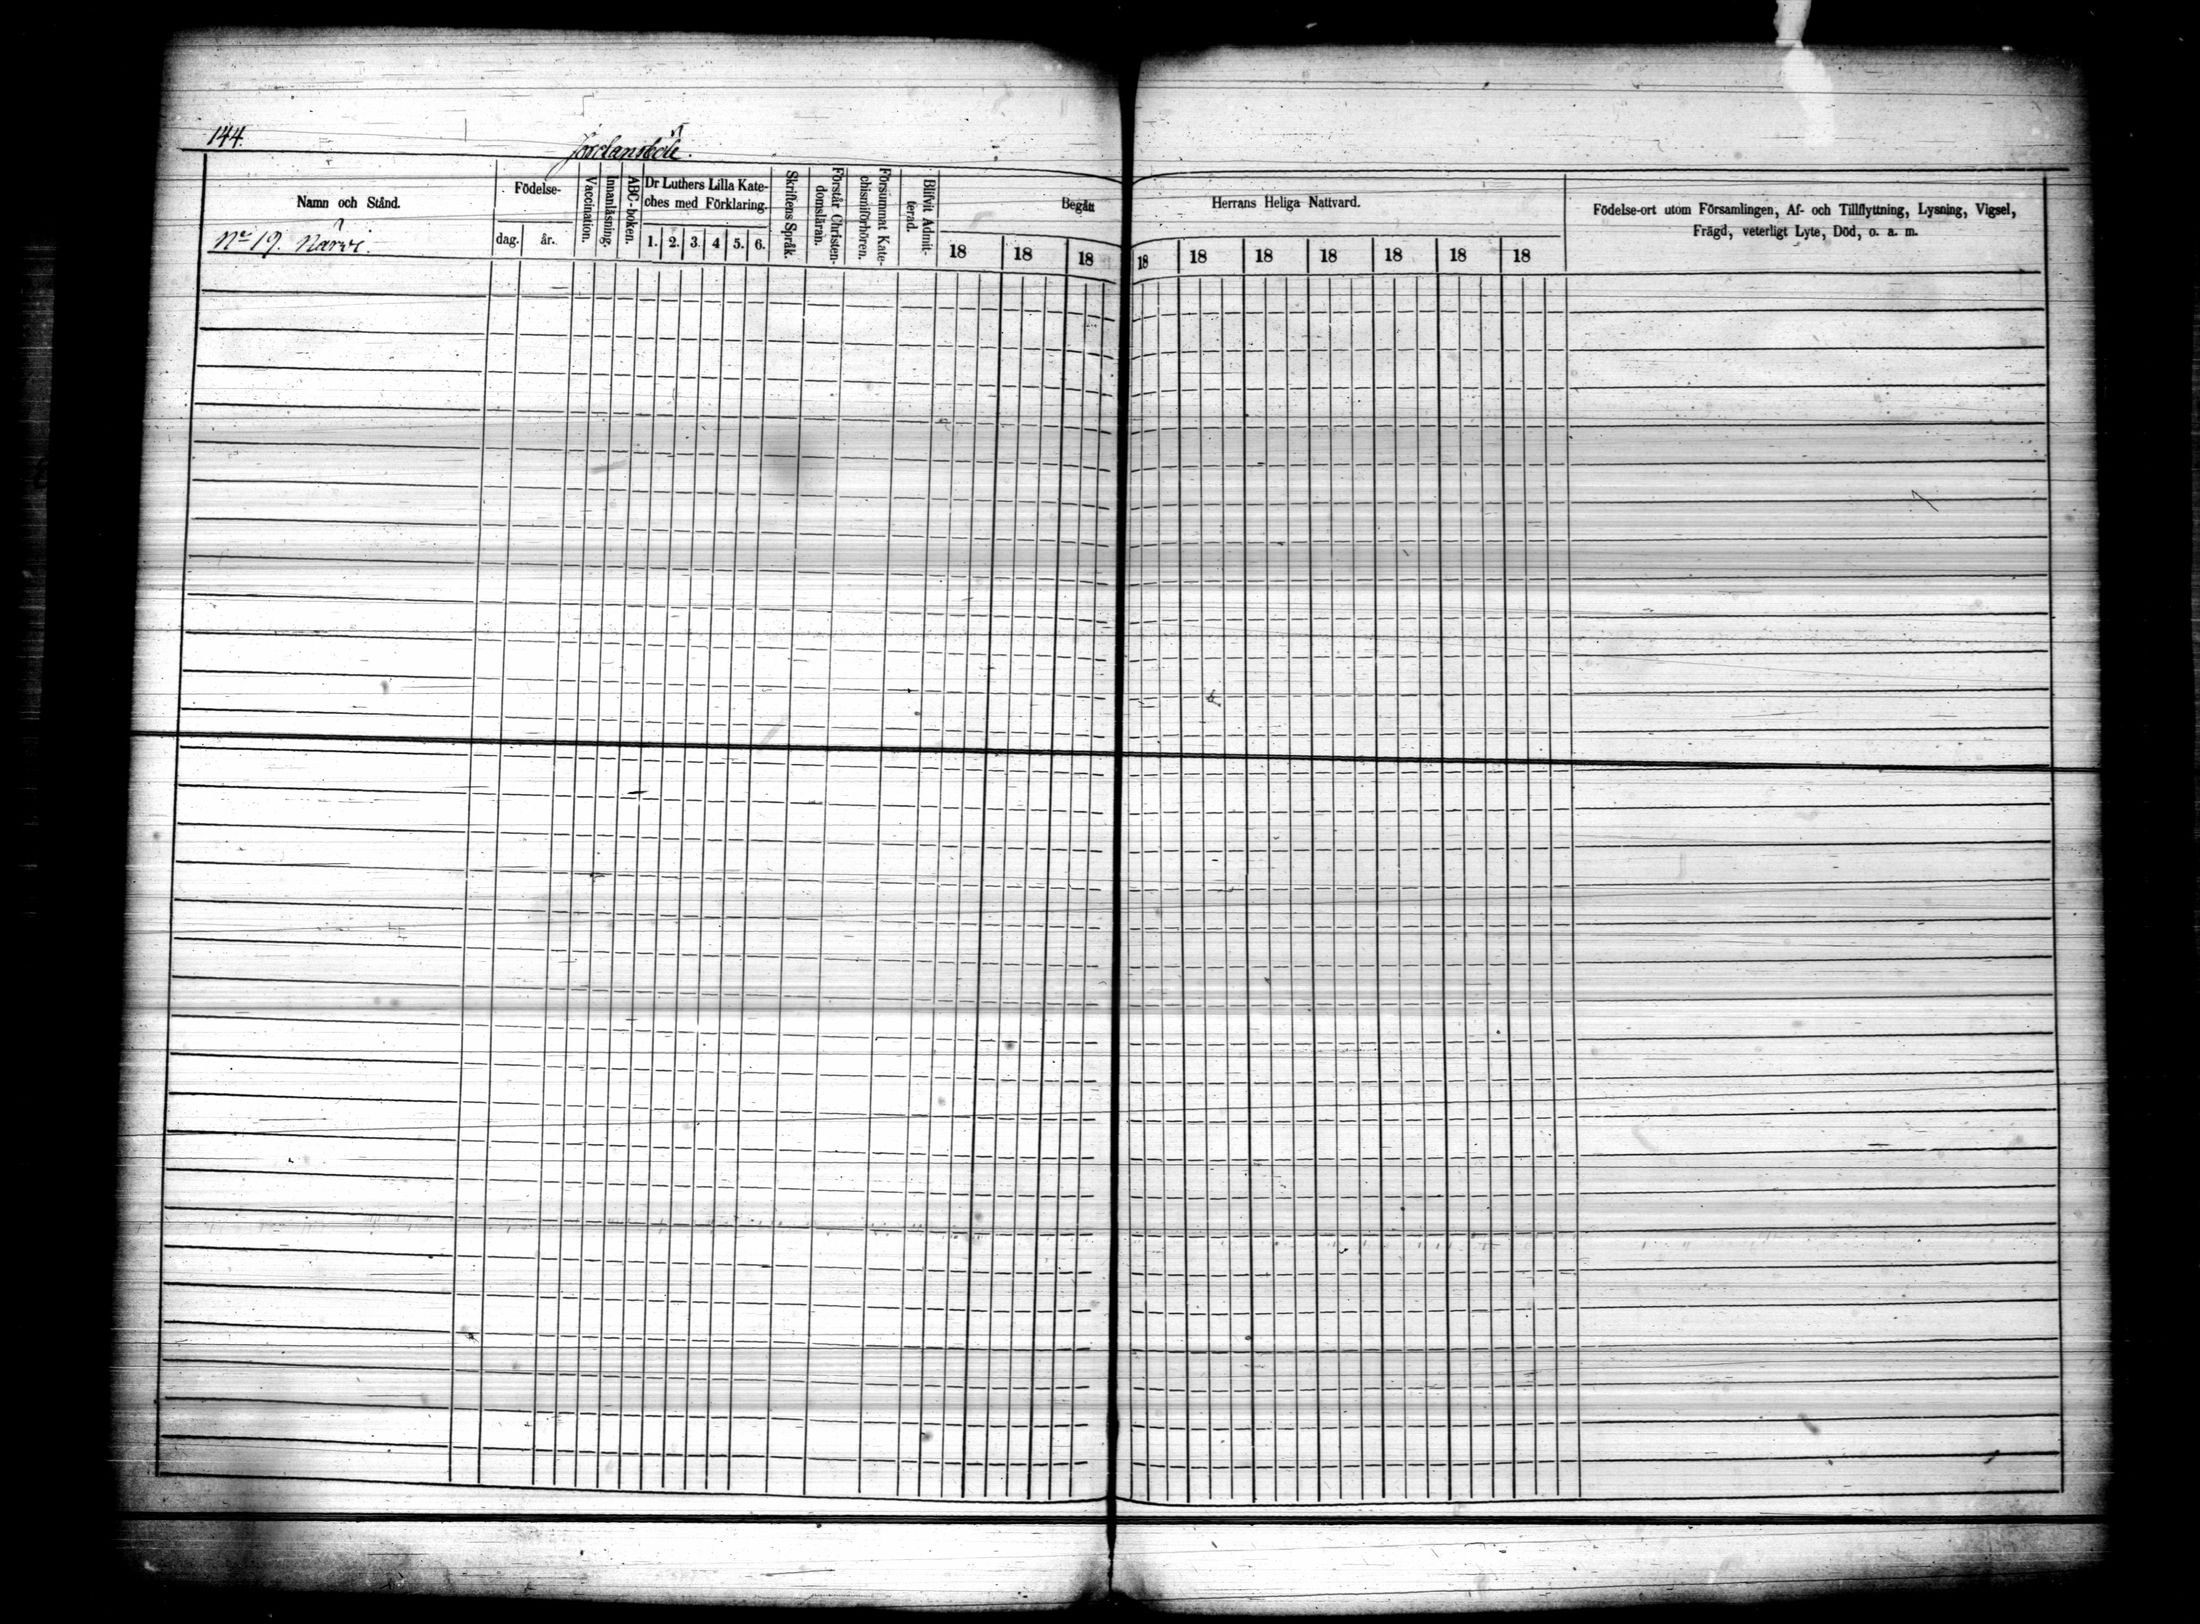 144.
Jordansböle.
Namn och Stånd.
No 19. Närvi.
Födelse-
dag.
år.
Vaccination.
Innanläsning.
ABC-boken.
Dr Luthers Lilla Kate-
ches med Förklaring.
1. 2. 3. 4 5. 6.
Skriftens Språk.
Förstår Christen-
domsläran.
Försummat Kate-
chismiförhören.
Blifvit Admit-
terad.
Begått
18 18 18
Herrans Heliga Nattvard.
18 18 18 18 18 18 18
Födelse-ort utom Församlingen, Af- och Tillflyttning, Lysning, Vigsel,
Frägd, veterligt Lyte, Död, o. a. m.